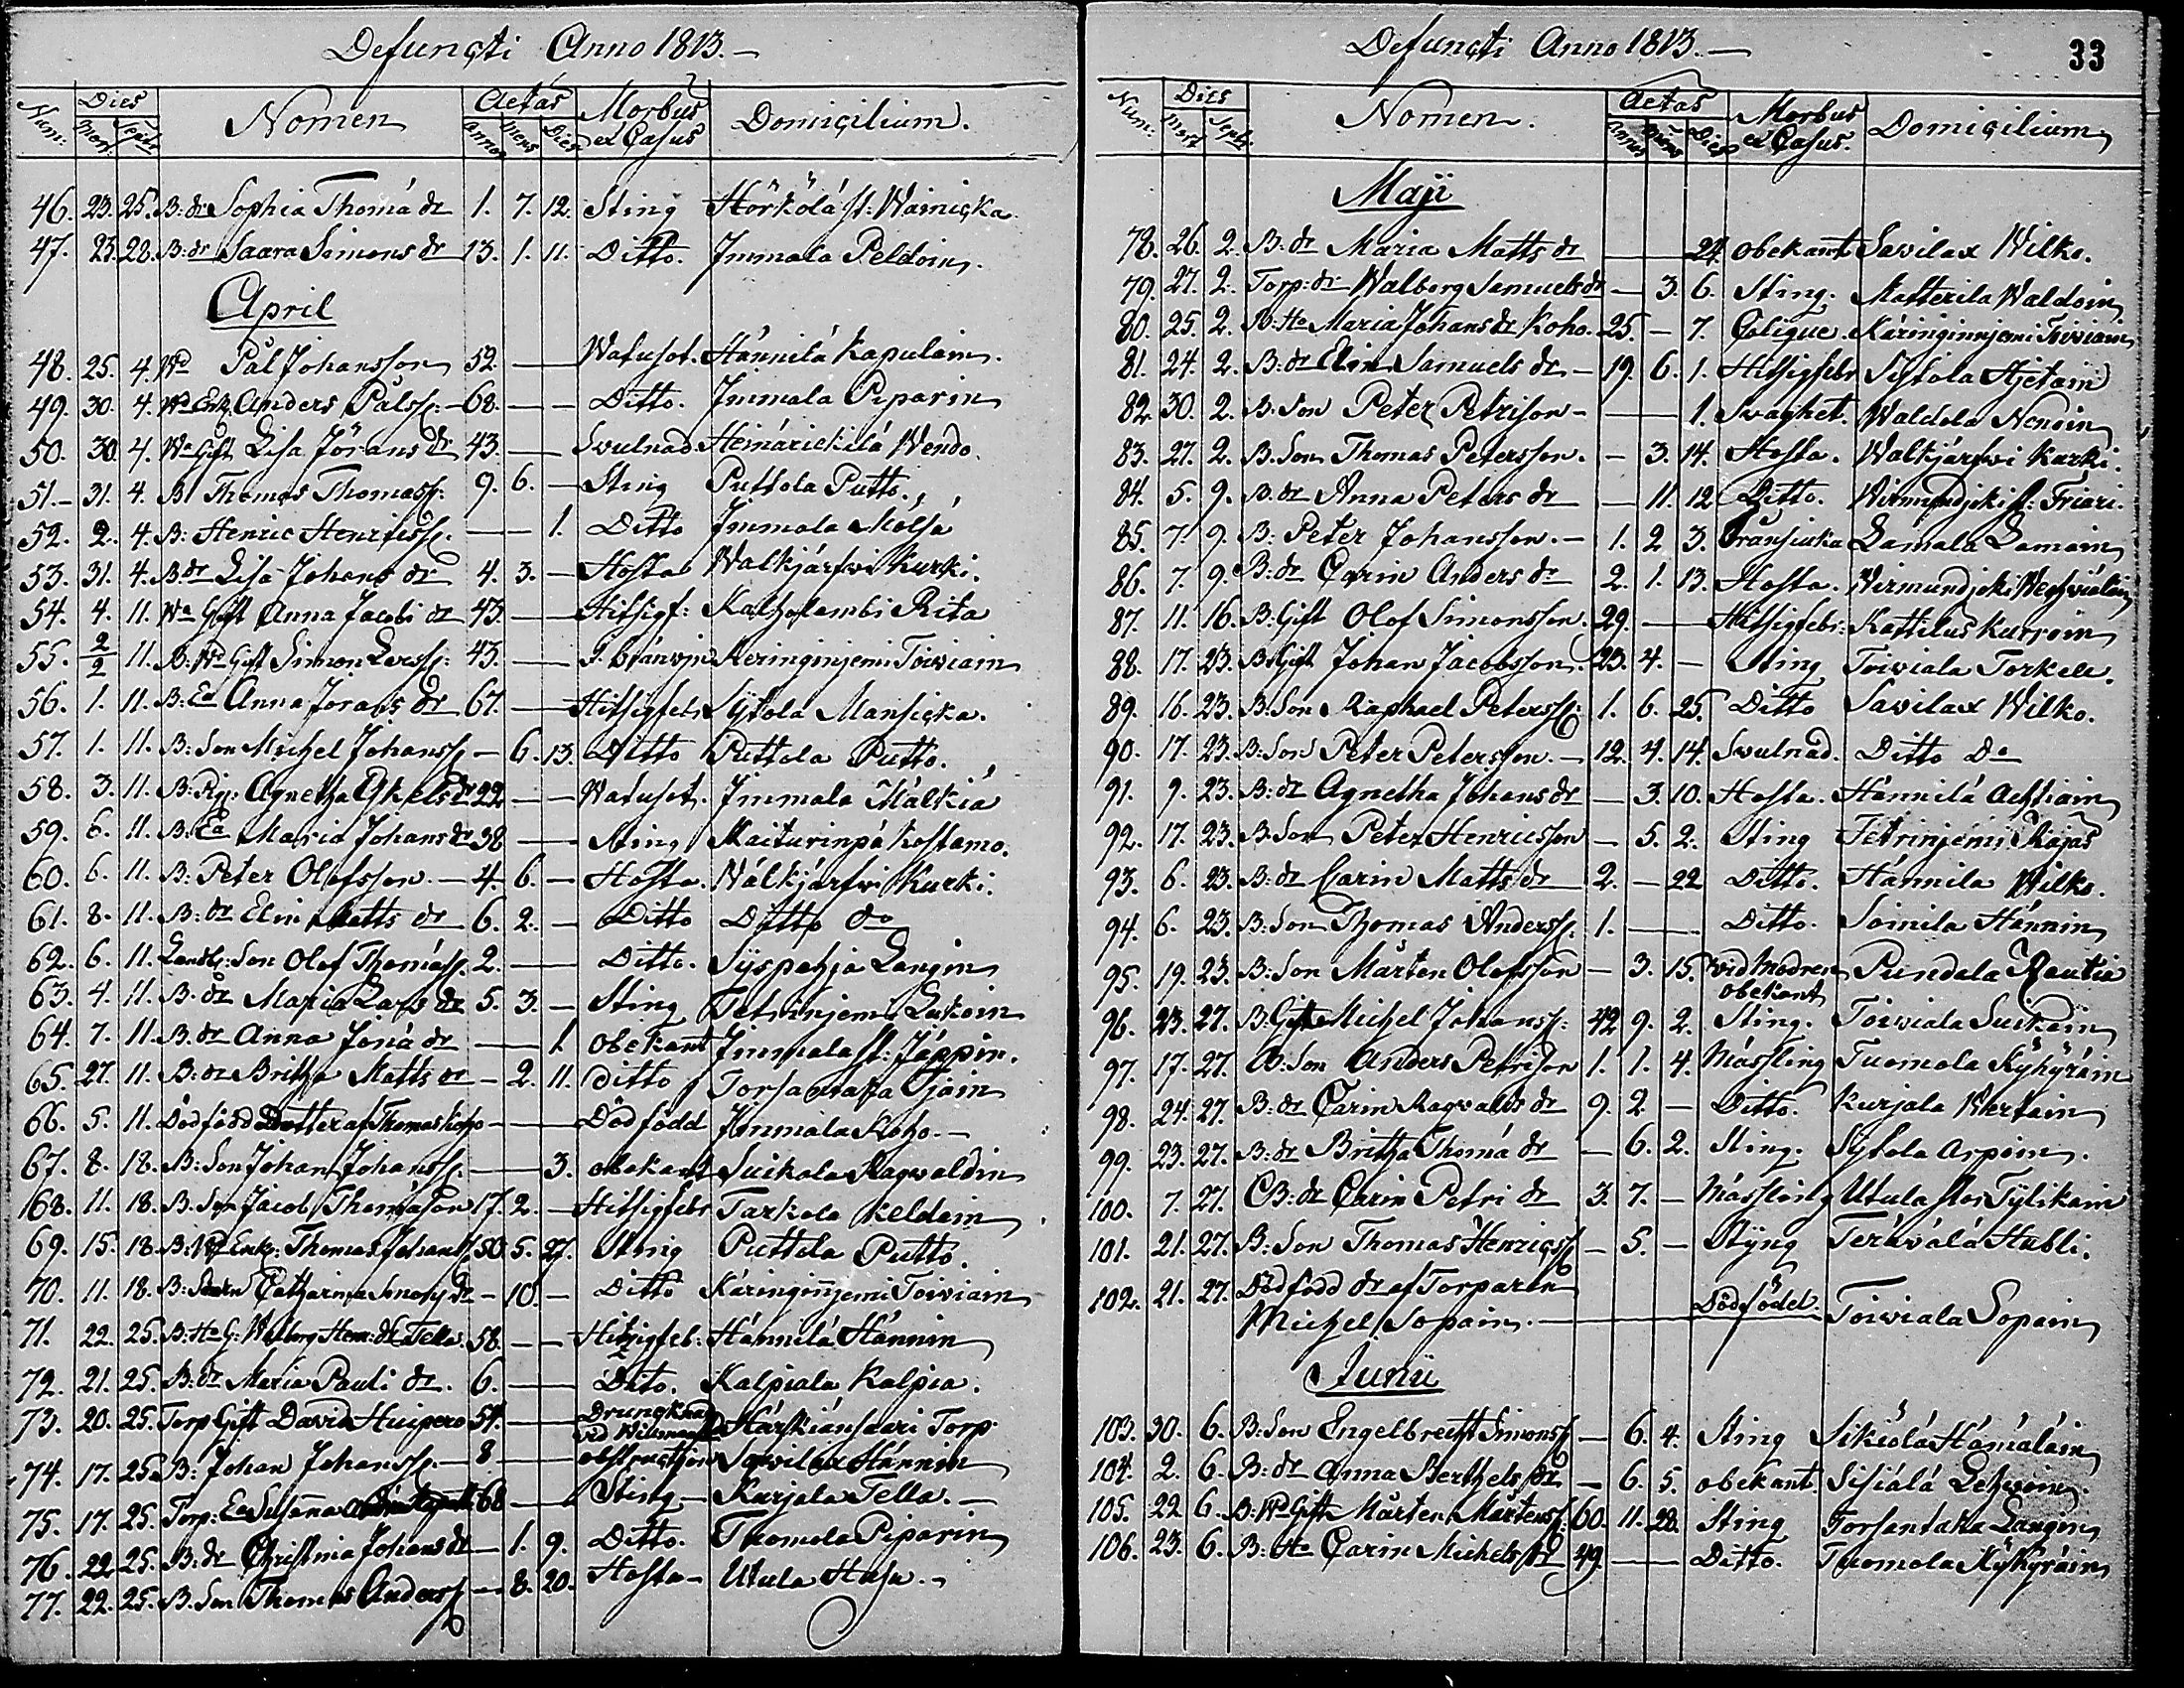 Defuncti Anno 1813.
Num: Dies Mort: Sept: Nomen Aetas Annos Mens Dies Morbus et Casus Domicilium.
46. 23. 25. B: dr Sophia Thomä dr 1. 7. 12. Sting Hörkölä st: Wainicka
47. 23. 28. B: dr Saara Simons dr 13. 1. 11. Ditto. Immola Peldoin
April
48. 25. 4. Wd Pål Johansson 52. — Watusot. Hännilä Kapulain.
49. 30. 4. Wd Enk. Anders Pålss: 68. — — Ditto. Immala Piparin
50. 30. 4. Wa Gift Lisa Jörans dr 43. — Svulnad Heinärickilä Wendo.
51. 31. 4. B Thomas Thomass: 9. 6. — Sting Puttola Putto.
52. 2. 4. B: Henric Henricss: — 1. Ditto Immola Mölsä
53. 31. 4. B dr Lisa Johans dr 4. 3. — Hosta Walkjärfwi Kurki.
54. 4. 11. Wa Gift Anna Jacobs dr 43. — Hitsigf: Kalholambi Rita
55. 2/2 11. B: Wd Gift Simon Larss: 43. — Keringinjemi Toiviain
56. 1. 11. B: Ea Anna Jorans dr 67. — Hitsigfebr Sÿtola Mansicka.
57. 1. 11. B: Son Michel Johanss: — 6. 13. Ditto Puttola Putto.
58. 3. 11. B: Pig: Agnetha Eskels dr 22 — — Watusot. Immola Mälkiä
59. 6. 11. B. Ea Maria Johans dr 38 — Sting Raiturinpä Kostamo.
60. 6. 11. B: Peter Olofsson. — 4. 6. — Hosta. Wälkjärfwi Kurki.
61. 8. 11. B: dr Elin Matts dr 6. 2. — Ditto Ditto Do
62. 6. 11. Landb: Son Olof Thomäss: 2. — Ditto. Syspohja Langin
63. 4. 11. B. dr Maria Lars dr 5. 3. — Sting Tetrinjemi Lukoin
64. 7. 11. B. dr Anna Jonä dr — 1. obekant Immola st: Jäppin.
65. 27. 11. B: dr Britha Matts dr — 2. 11. ditto Torsantaka Ojain
66. 5. 11. Dödfödd Dotter af Thomas Koho — Dödfödd Immola Koho. —
67. 8. 18. B: Son Johan Johanss: — 3. obekant Suikala Ragwaldin
68. 11. 18. B. Son Jacob Thomäson 17. 2. — Hitsigfebr Tarkola Keldain
69. 15. 18. B: Wd Enk: Thomas Johans: 50. 5. 27. Sting Puttola Putto.
70. 11. 18. B: Catharina Simons dr — 10. — Ditto Käringinjemi Toiviain
71. 22. 25. B: Ha G: Walborg Henr: dr Tella. 58. — — Hitsigfeb: Hännilä Hännin
72. 21. 25. B: dr Maria Pauli dr. 6. — Dito. Kalpiala Kalpia.
73. 20. 25. Torp Gift David Huipero 54. — Drungknad vid Wilmanst Härskiänsaari Torp
74. 17. 25. B: Johan Johanss: — 8 — obstruction Sawilax Hännin
75. 17. 25. Torp: Ea Susanna 68 — Sting — Kurjala Tella. —
76. 22 25. B: dr Christina Johans dr — 1. 9. Ditto. Tuomola Piparin
77. 22. 25. B. Son Thomas Anderss: — 8. 20. Hosta — Utula Husu. —
Defuncti Anno 1813. 33
Num: Dies Mort Sept. Nomen. Aetas Annos Mens Dies Morbus et Casus. Domicilium
Maji
78. 26. 2. B: dr Maria Matts dr — 24. obekant Savilax Wilko.
79. 27. 2. Torp: dr Walborg Samuels dr — 3. 6. Sting. Matterila Waldoin
80. 25. 2. B: Ha Maria Johans dr Koho. 25. — 7. Colique. Käringinnjemi Toiviain
81. 24. 2. B: dr Elin Samuels dr — 19. 6. 1. Hitsigfebr Sistola Hjetain
82. 30. 2. B: Son Peter Petrison — 1. Svaghet. Waldola Nenoin
83. 27. 2. B. Son Thomas Petersson. — 3. 14. Hosta. Walkjärfwi Karki.
84. 5. 9. B. dr Anna Peters dr — 11. 12 Ditto. Wirmundjoki st: Friari.
85. 7. 9. B: Peter Johansson. — 1. 2 3. Lamala Lamain
86. 7. 9. B: dr Carin Anders dr 2. 1. 13. Hosta. Wirmundjoki Wechviälin
87. 11. 16. B: Gift Olof Simonsson. 29. — Hitsigfebr: Kattilus Kurroin
88. 17. 23. B: Gift Johan Jacobsson. 23. 4. — Sting Toiviala Torkell.
89. 16. 23. B. Son Raphael Peterss: 1. 6. 25. Ditto Savilax Wilko.
90. 17. 23. B: Son Peter Petersson. — 12. 4. 14. Svulnad. Ditto Do
91. 9. 23. B: dr Agnetha Johans dr — 3. 10. Hosta. Hännilä Achtiain
92. 17. 23. B. Son Peter Henricsson — 5. 2. Sting Tetrinjemi Rajas
93. 6. 23. B: dr Carin Matts dr 2. — 22 Ditto. Hännila Wilko.
94. 6. 23. B: Son Thomas Anderss: 1. — Ditto. Soimila Hännin
95. 19. 23. B: Son Mårten Olofsson — 3. 15. vid Modren obekant Pundala Rautia
96. 23. 27. B. Gift Michel Johanss: 42 9. 2. Sting. Toiviala Suikain
97. 17. 27. B: Son Anders Petrison 1. 1. 4. Mässling Tuomola Kÿhÿräin
98. 24. 27. B: dr Carin Ragwalds dr 9. 2. — Ditto. Kurjala Wertain
99. 23. 27. B: dr Britha Thomä dr — 6. 2. Sting. Sÿtola Arpoin.
100. 7. 27. B: dr Carin Petri dr 3. 7. — Mässling Utula stor Tÿlikain
101. 21. 27. B: Son Thomas Henricss: — 5. — Stÿng Teräwälä Hubli.
102. 21. 27. Dödfödd dr af Torparen
Michel Sopain. — Dödfödd. Toiviala Sopain
Junii
103. 30. 6. B: Son Engelbrecht Simonss: — 6. 4. Sting Sikiölä Hämäläin
104. 2. 6. B: dr Anna Berthels dr — 6. 5. obekant. Sisiälä Lehwein
105. 22 6. B: Wd Gift Mårten Mårtenss: 60. 11. 28. Sting Torsantaka Langin
106. 23. 6. B: Ha Carin Michels dr 49. — Ditto. Tuomola Kÿhÿräin